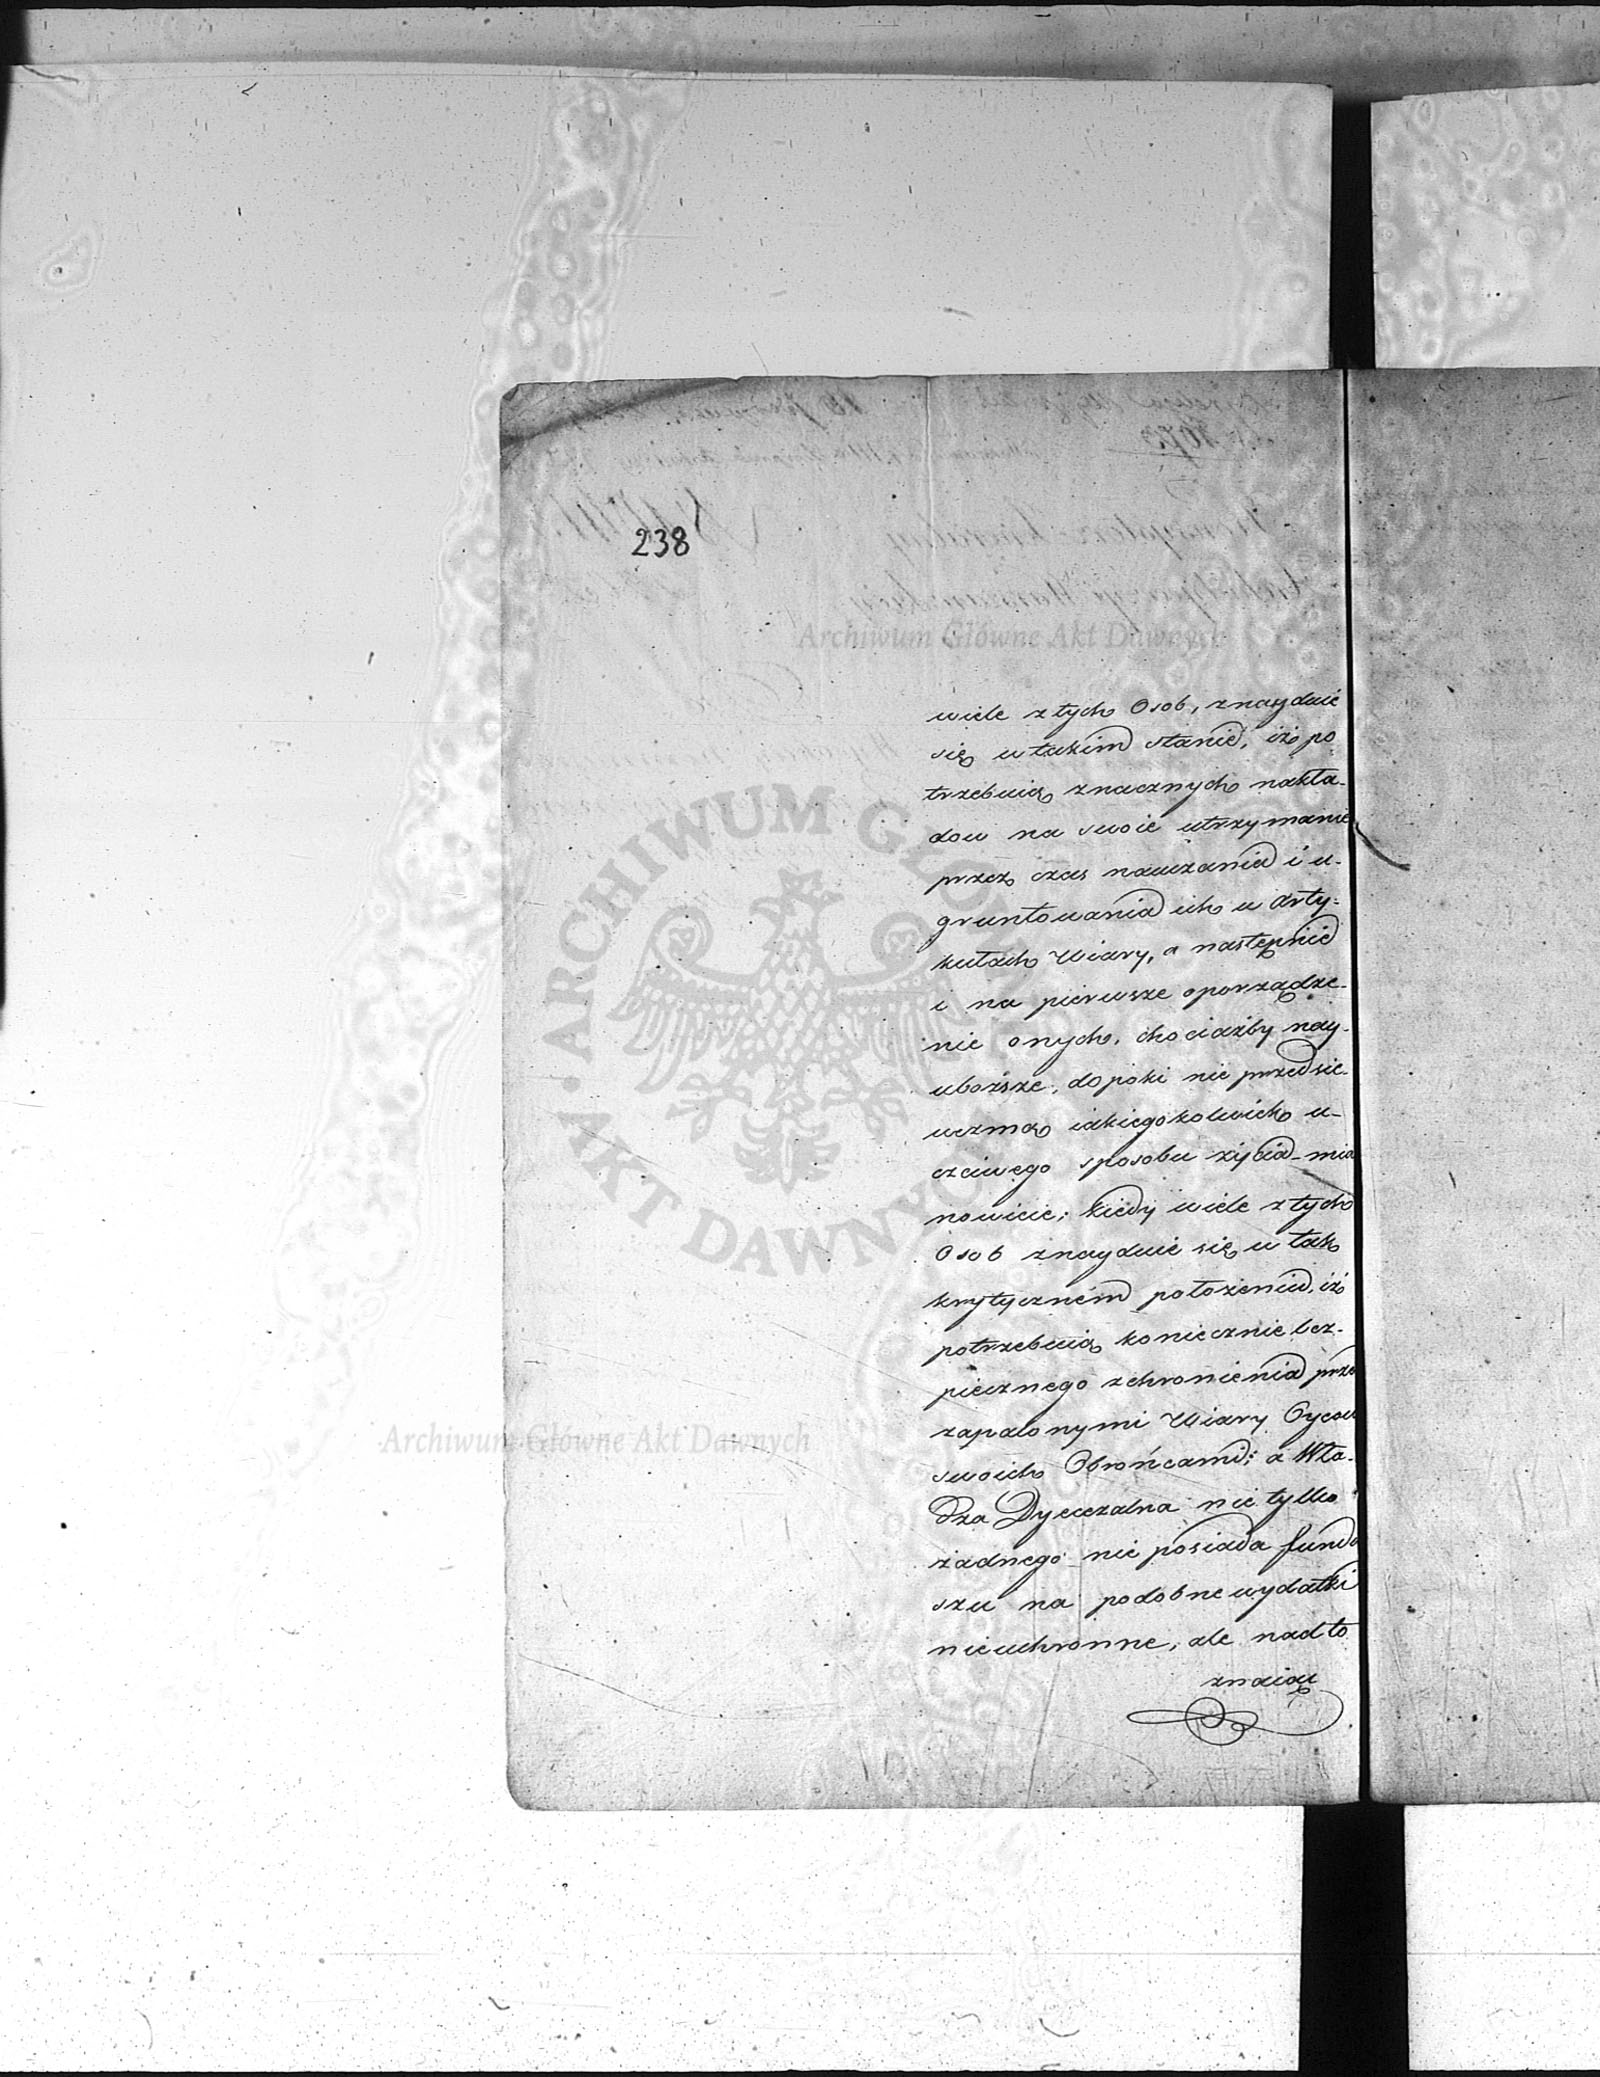 238
wiele z tych Osob, znayduie
się w takim stanie, iż po
trzebuią znacznych nakła-
dow na swoie utrzymanie
przez czas nauczania i u-
gruntowania ich w Arty-
kułach Wiary, a następnie
i na pierwsze oporządze-
nie onych, chociażby nay-
uboższe, dopoki nie przedsie-
wezmą iakiegokolwiek u-
czciwego sposobu życia - mia
nowicie; kiedy wiele z tych
Osob znayduie się w tak
krytyczném położeniu, iż
potrzebuią koniecznie bez-
piecznego schronienia przed
zapalonymi Wiary Oycow
swoich Obrońcami; a Wła-
dza Dyecezalna nie tylko
żadnego nie posiada fundu
szu na podobne wydatki
nieuchronne, ale nadto
znaiąc
ARCHIWUM GŁÓWNE AKT DAWNYCH
Archiwum Główne Akt Dawnych
Archiwum Główne Akt Dawnych